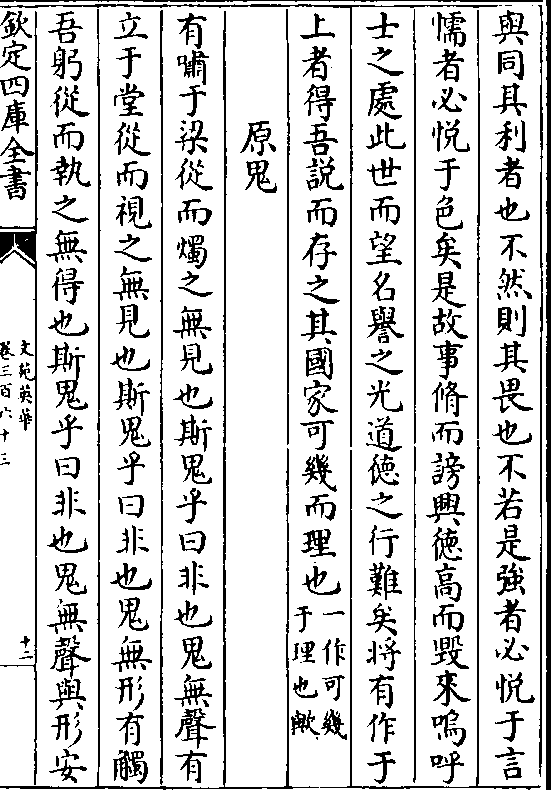 與同其利者也不然則其畏也不若是強者必悦于言
懦者必悦于色矣是故事脩而謗興徳高而毁來嗚呼
士之處此世而望名譽之光道徳之行難矣将有作于
上者得吾説而存之其國家可幾而理也一作可幾于理也歟
原鬼
有嘯于梁從而燭之無見也斯鬼乎曰非也鬼無聲有
立于堂從而視之無見也斯鬼乎曰非也鬼無形有觸
吾躬從而執之無得也斯鬼乎曰非也鬼無聲與形安
欽定四庫全書
文苑英華
卷三百六十三
十二